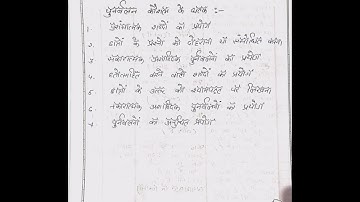 पुनर्बलन कौशल के घटक :-
1. प्रशंसात्मक शब्दों का प्रयोग
2. छात्रों के उत्तरों को दोहराना या संशोधित करना
3. सकारात्मक अशाब्दिक पुनर्बलनों का प्रयोग
4. हतोत्साहित करने वाले शब्दों का प्रयोग
5. छात्रों के उत्तर को श्यामपट्ट पर लिखना
6. नकारात्मक अशाब्दिक पुनर्बलनों का प्रयोग
7. पुनर्बलनों का अनुचित प्रयोग